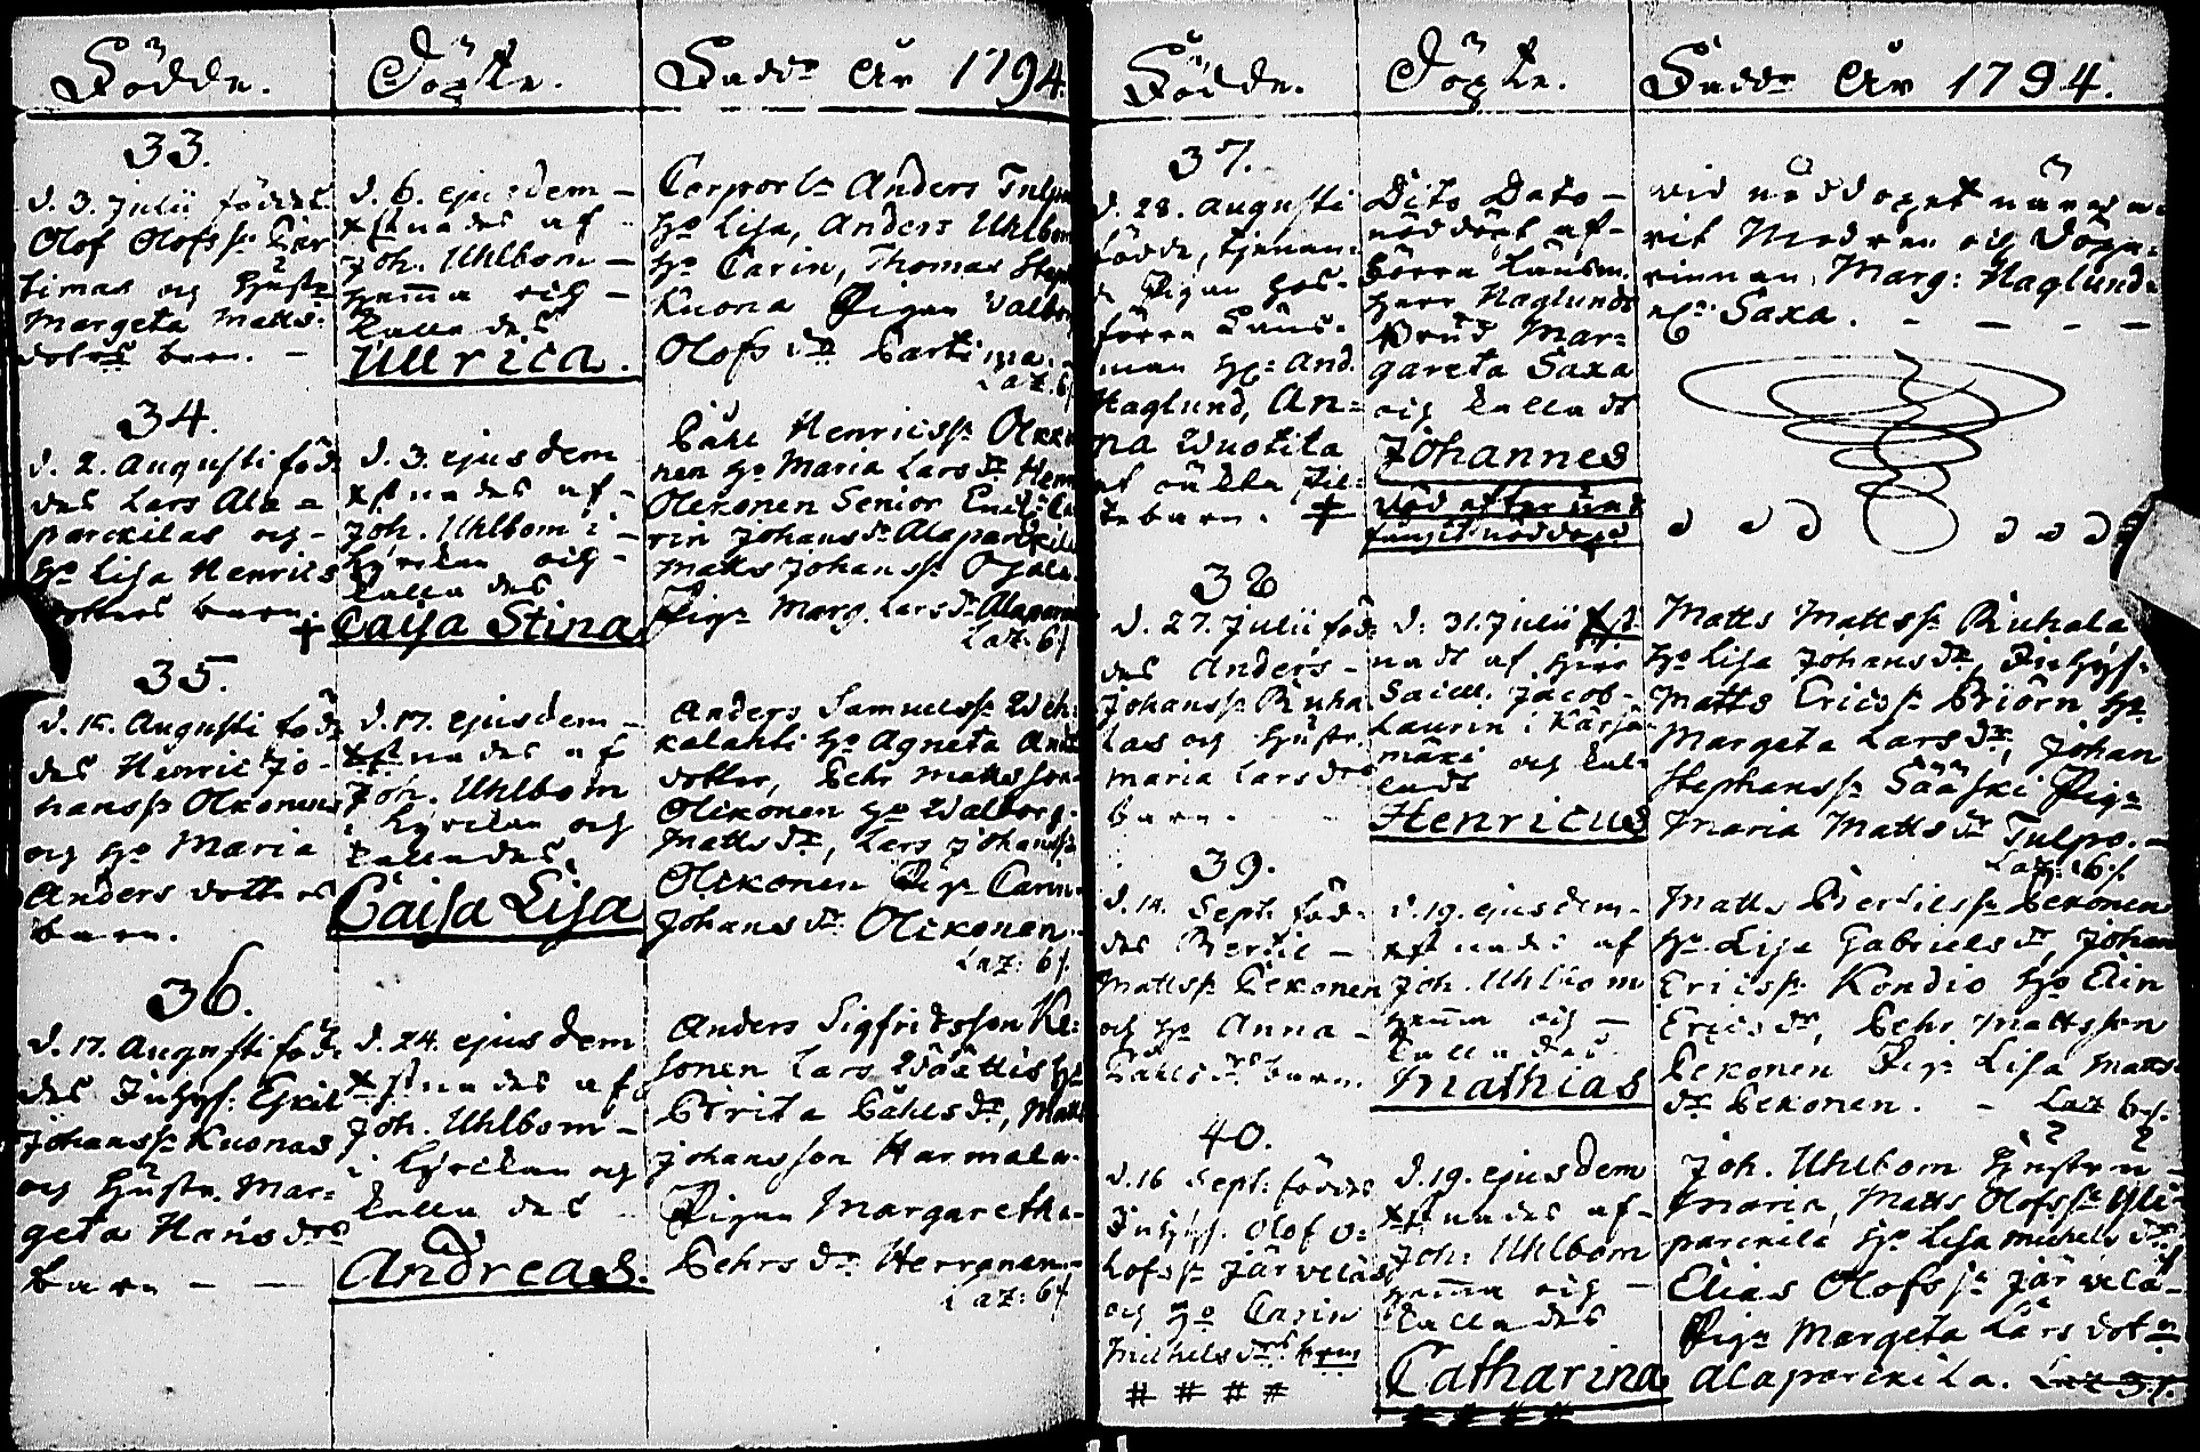 Födde.
Döpte.
Fadde År 1794.
33.
d. 3. Julii föddes
Olof Olofss: Bar
timas och Hustr
Margeta Matts-
dotrs barn. -
d. 6. ejusdem -
xstnades af
Joh. Uhlbom -
hema och -
kallades
Ullrica.
Corporls Anders Tulpo
Ho Lisa, Anders Uhlbom
Ho Carin, Thomas
Kuona Pigan Valbor
Olofs dr Bartima.
Laz. 6/
34.
d. 2. Augusti föd-
des Lars Ala=
parckilas och -
Ho Lisa Henrics
dotters barn. +
d. 3. ejusdem
xstnades af -
Joh. Uhlbom i -
Kyrckan och -
kallades
Caisa Stina
Påhl Henricss: Olkko
nen Ho Maria Lars dr Henr
Olckonen Senior Enckl: Ca
rin Johans dr Alaparckila
Matts Johanss: Ojala
Pign Marg. Lars dr Alaparc
Laz: 6/
35.
d. 15. Augusti föd-
des Henric Jo-
hanss: Olkonens
och Ho Maria
Anders dotters
barn.
d. 17. ejusdem -
xstnades af
Joh. Uhlbom
i Kyrckan och
kallades
Caisa Lisa
Anders Samuelss: Weh-
kalahti Ho Agneta And
dotter, Pehr Mattsson
Olckonen Ho Walborg
Matts dr, Lars Johanss:
Olckonen Pign Carin
Johans dr Olckonen.
Laz: 6/.
36.
d. 17. Augusti föd-
des Inhys: Eskil
Johanss: Kuonas
och Hustr. Mar=
geta Hans drs
barn - -
d. 24. ejusdem
xstnades af
Joh. Uhlbom -
i Kyrckan och
kallades
Andreas.
Anders Sigfridsson Ke=
sonen Lars Wöättis Ho
Brita Påhls dr, Matts
Johansson Harmala.
Pigan Margaretha
Pehrs dr Herranen.
Laz: 6/
Födde.
Döpte.
Fadde År 1794.
37.
d. 28. Augusti
födde, tjenan-
de Pigan hos
förra Läns-
man Hr: And.
Haglund, An=
na Wuotila
et oäckta Pil-
tebarn. +
Dito Dato -
nöddöpt af -
förra Länsm.
Herr Haglunds
Fruu Mar=
gareta Saxa
och kalladt
Johannes
död efter und
fångit nöddop
wid nöddopet närwa-
rit Modren och Döpa-
rinnan, Marg: Haglund
Saxa. - - - -
38
d. 27. Julii föd-
des Anders -
Johanss: Ruha
las och Hustr.
Maria Lars drs
barn.
d: 31. Julii xst-
nadt af Herr
Sacell. Jacob -
Laurin i Kärsä
mäki och kal-
ladt
Henricus
Matts Mattss: Ruhala
Ho Lisa Johans dr, Inhys:
Matts Ericss: Briörn Ho
Margeta Lars dr, Johan
Stephanss: Sääski Pign
Maria Matts dr Tulpo. -
Laz: 6/.
39.
d. 14. Sept. föd-
des Bertil -
Mattss: Pekonen
och Ho Anna -
Påhls drs barn.
d. 19. ejusdem -
xstnades af
Joh. Uhlbom
hema och -
kallades
Mathias
Matts Bertilss: Pekonen
Ho Lisa Gabriels dr, Johan
Ericss: Kondio Ho Elin
Erics dr, Pehr Mattsson
Pekonen Pign Lisa Matts
dr Pekonen. - Laz 6/.
40.
d. 16 Sept: föddes
Inhys: Olof O=
lofss: Järwelas
och Ho Carin
Michels drs barn
# # # #
d. 19. ejusdem
xstnades af -
Joh: Uhlbom
hema och -
kallades
Catharina
# # # #
Joh. Uhlbom Hustrun
Maria, Matts Olofss: Yli
parckila Ho Lisa Michels dr
Elias Olofss: Järwelä -
Pign Margeta Lars dotr
Alaparckila. Laz 3/.